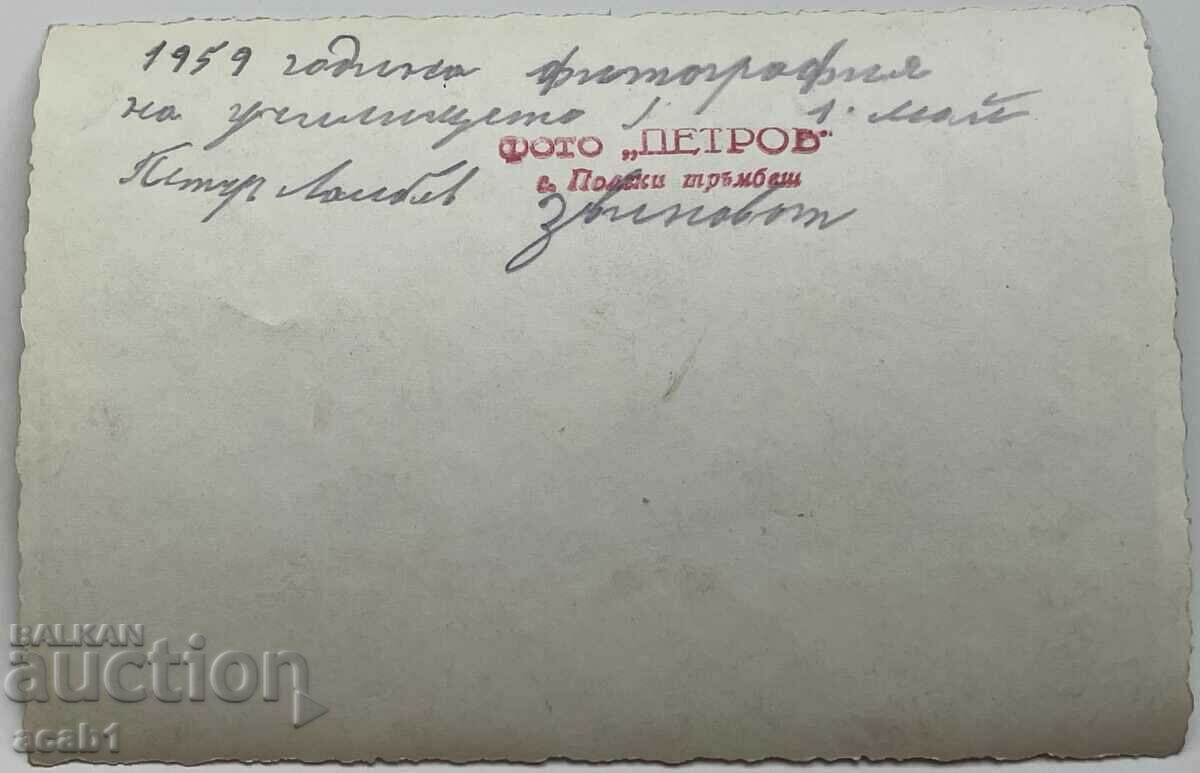 1959 година фитография
на училището 1. 1. май
ФОТО „ПЕТРОВ"
с. Полски тръмбеш
Петър
BALKAN
auction
acab1